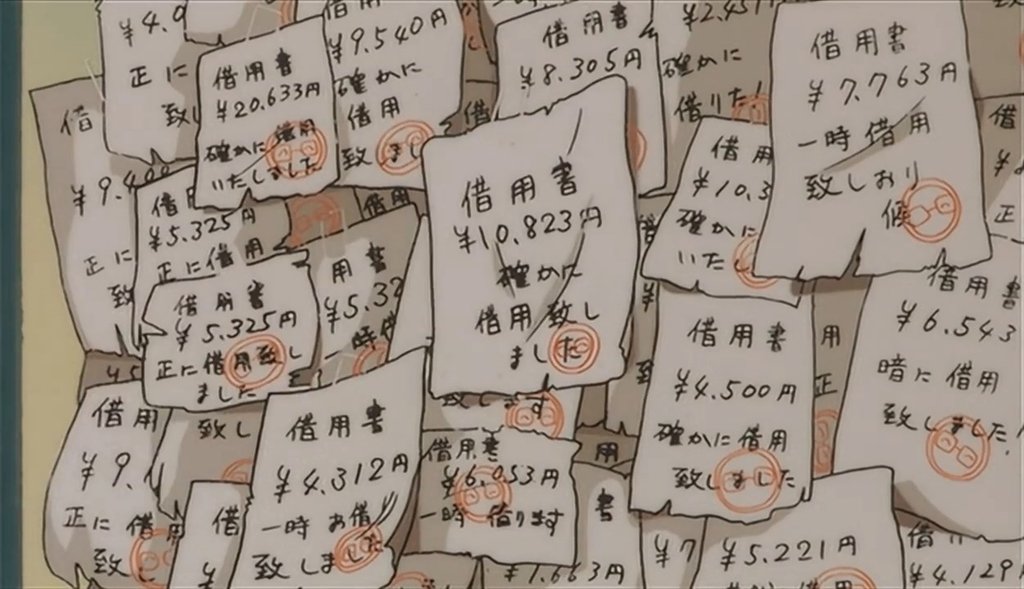 ¥4.0
正に
致し
借用書
¥20.633円
確かに借用
いたしました
借用書
¥9.540円
確かに
借用
致しました
借用書
¥8.305円
¥2.451
確かに
借りたし
借用書
¥7.763円
一時借用
致しおり
候
借
¥9.400
正に
致
¥5.325円
正に借用
借用書
¥5.325円
正に借用致し
ました
用書
¥5.32
一時借
借用書
¥10.823円
確かに
借用致し
ました
借用
¥10.3
確かに
いたし
借用書
¥4.500円
確かに借用
致しました
借用書
¥6.543
暗に借用
致しました
借用
¥9.
正に借用
致し
致し
借用書
¥4.312円
一時お借り
致しました
致します
借用書
¥6.053円
一時借ります
¥1.663円
書
用
正
借
¥
¥7
¥5.221円
借用
¥4.129円